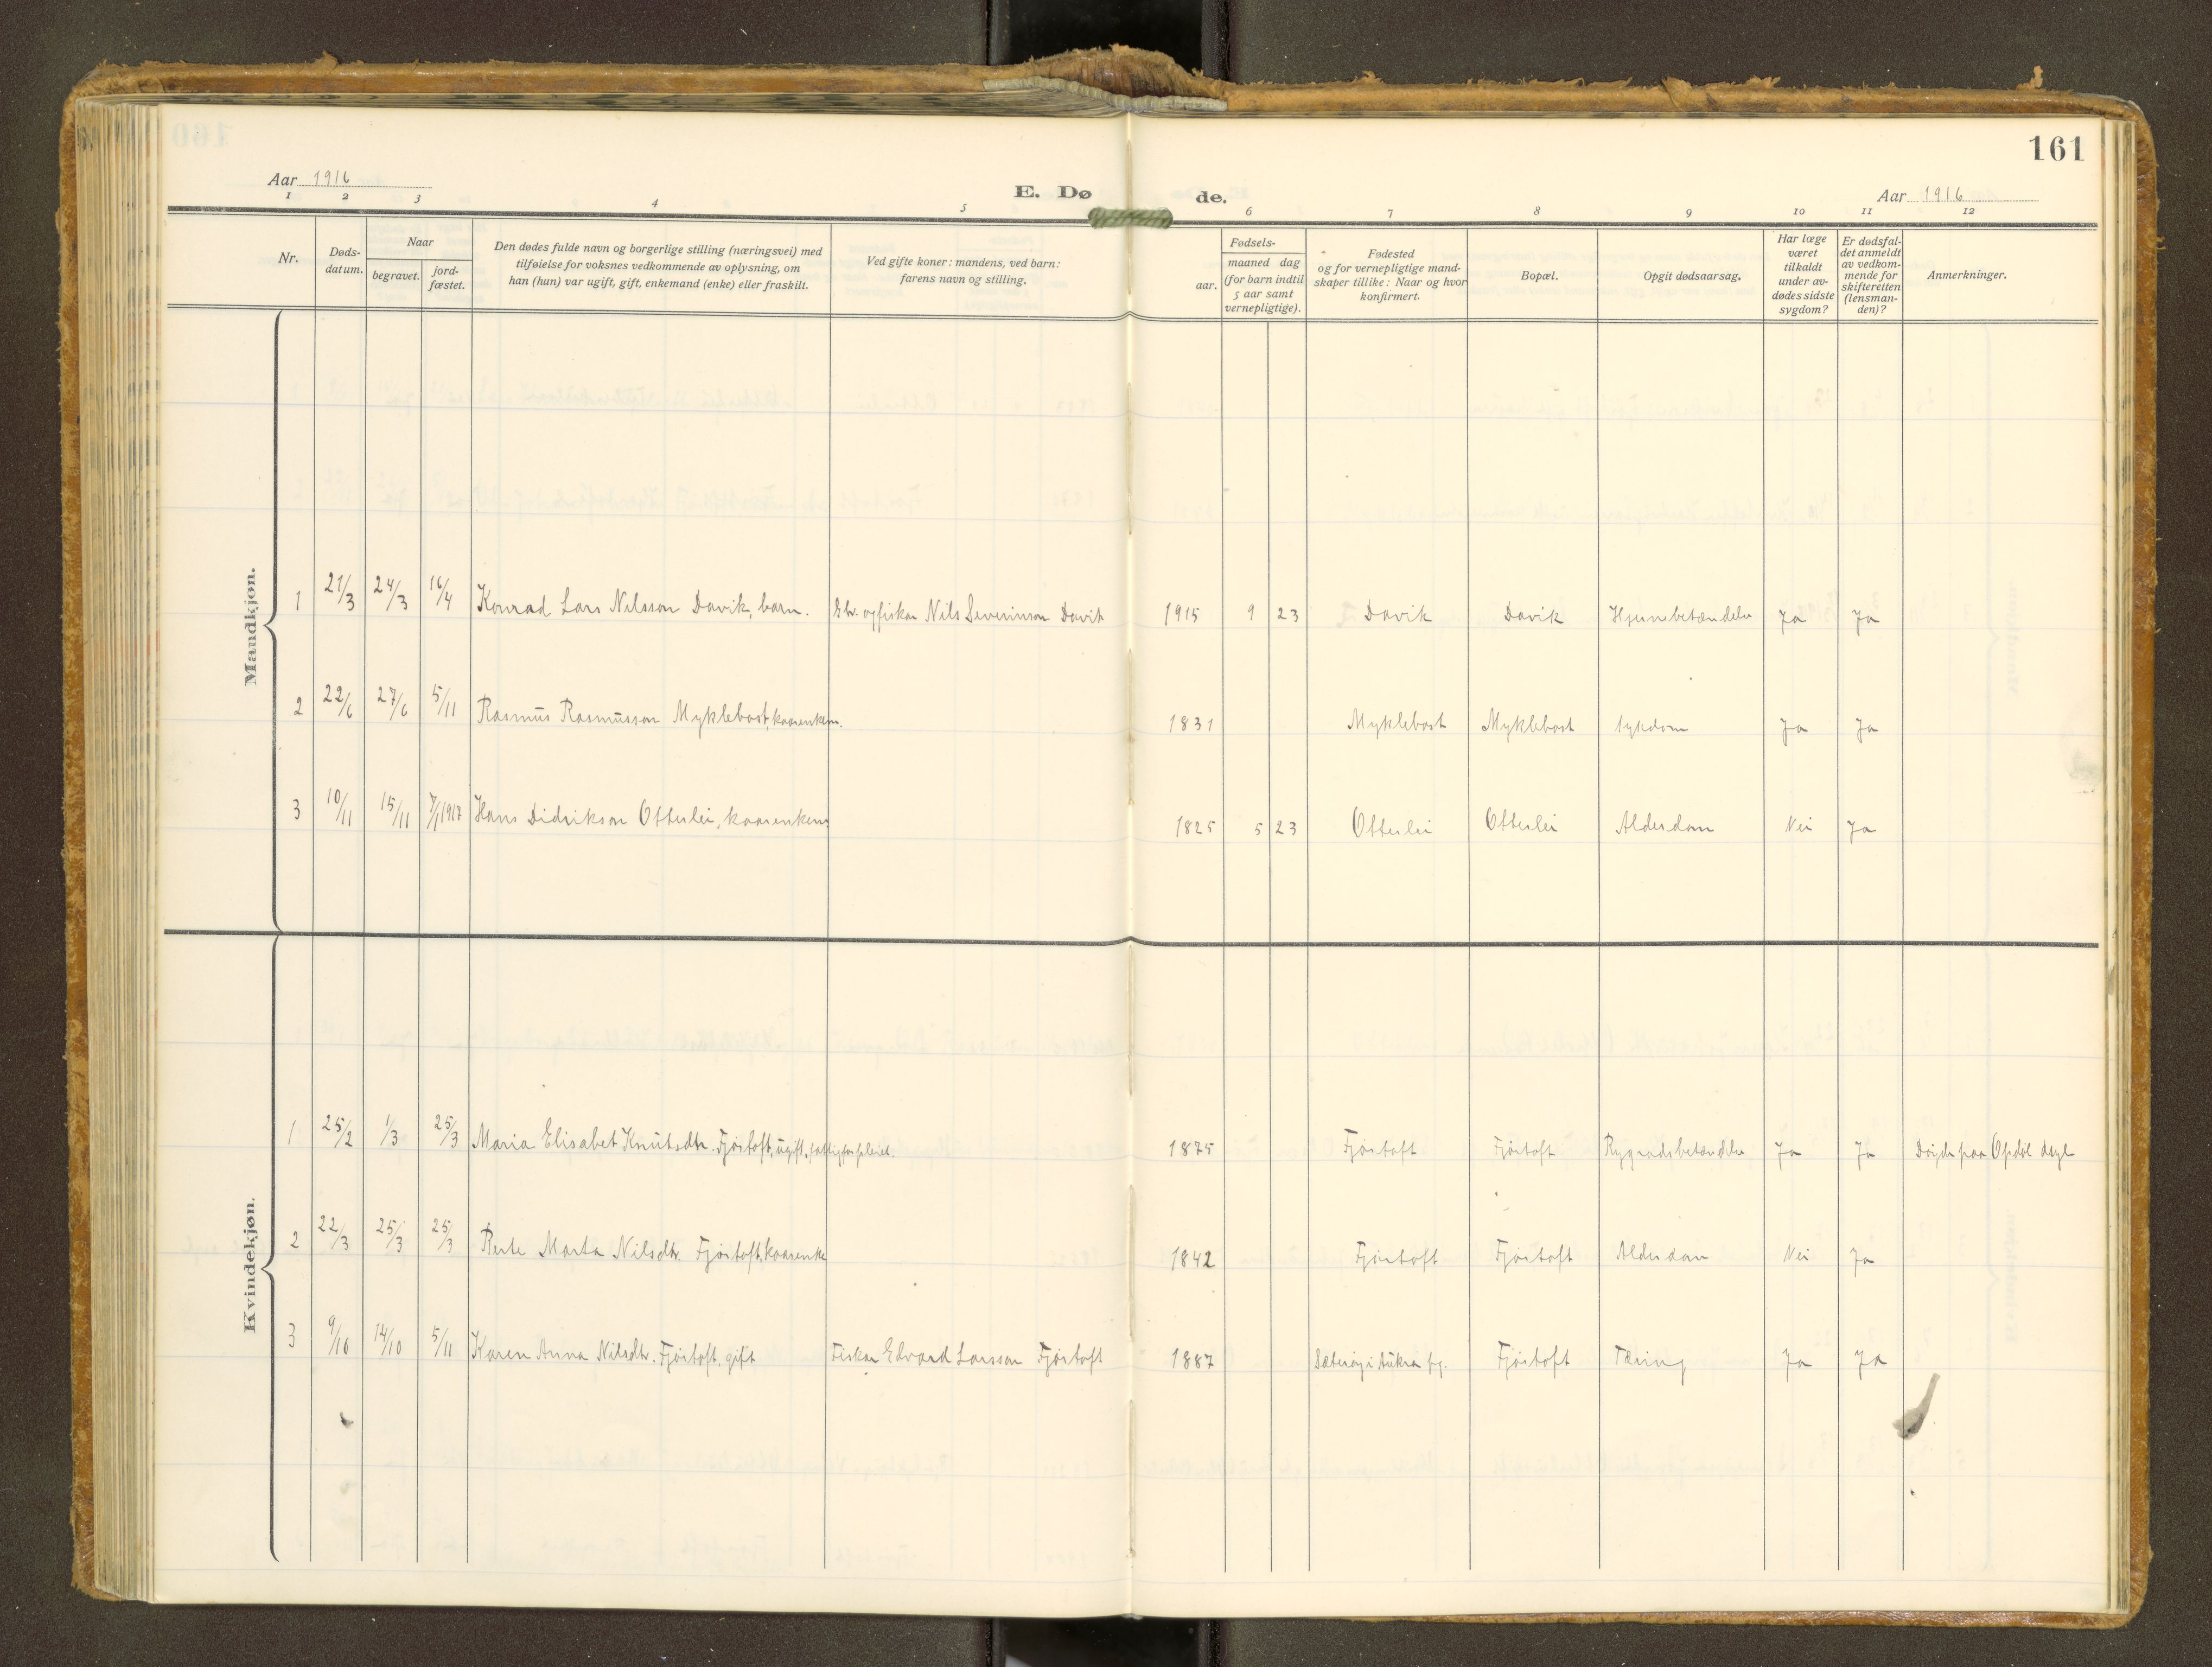 161
Aar 1916
E. Dø de.
Aar 1916
1 2 3 4 5 6 7 8 9 10 11 12
Nr.
Døds-datum.
Naar
begravet.
jord-fæstet.
Den dødes fulde navn og borgerlige stilling (næringsvei) med
tilføielse for voksnes vedkommende av oplysning, om
han (hun) var ugift, gift, enkemand (enke) eller fraskilt.
Ved gifte koner: mandens, ved barn:
farens navn og stilling.
Fødsels-
aar.
maaned dag
(for barn indtil
5 aar samt
vernepligtige).
Fødested
og for vernepligtige mand-
skaper tillike: Naar og hvor
konfirmert.
Bopæl.
Opgit dødsaarsag.
Har læge
været
tilkaldt
under av-
dødes sidste
sygdom?
Er dødsfal-
det anmeldt
av vedkom-
mende for
skifteretten
(lensman-
den)?
Anmerkninger.
Mandkjøn.
1 21/3 24/3 16/4 Konrad Lars Nilsson Davik, barn. Gbr. og fisker Nils Severinson Davik 1915 9 23 Davik Davik Hjernebetændelse Ja Ja
2 22/6 27/6 5/11 Rasmus Rasmusson Myklebost, kaarenkem. 1831 Myklebost Myklebost sykdom Ja Ja
3 10/11 15/11 7/1 1917 Hans Didrikson Otterlei, kaarenkem 1825 5 23 Otterlei Otterlei Alderdom Nei Ja
Kvindekjøn.
1 25/2 1/3 25/3 Maria Elisabet Knutsdtr. Fjørtoft, ugift, fattigforpleiet. 1875 Fjørtoft Fjørtoft Rygradsbetændelse Ja Ja Døyde paa Opdøl asyl
2 22/3 25/3 25/3 Berte Marta Nilsdtr. Fjørtoft, kaarenke 1842 Fjørtoft Fjørtoft Alderdom Nei Ja
3 9/10 14/10 5/11 Karen Anna Nilsdtr. Fjørtoft, gift Fisker Edvard Larsson Fjørtoft 1887 Sæterøy i Aukra pg. Fjørtoft Tæring Ja Ja